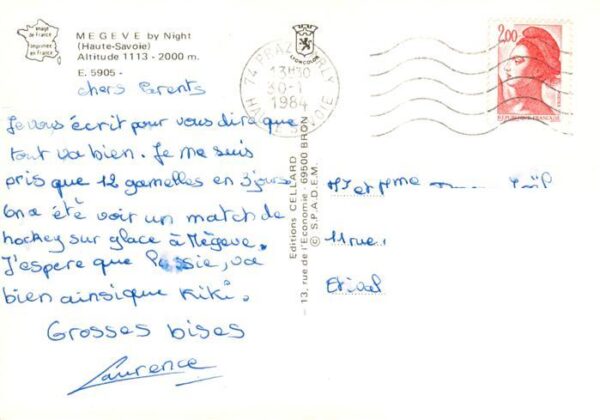 Image de France
imprimée en France
MEGEVE by Night
(Haute-Savoie)
Altitude 1113 - 2000 m.
E. 5905 -
LYONCOLOR
chers Parents
Je vous écrit pour vous dire que
tout va bien. Je me suis
pris que 12 gamelles en 3 jours
On a été voir un match de
hockey sur glace à Mègève.
J'espere que va
bien ainsique Kiki.
Grosses bises
Laurence
Editions CELLARD
13, rue de l'Economie - 69500 BRON
© S.P.A.D.E.M.
74 PRAZ ARLY
13H30
30-1
1984
HAUTE SAVOIE
2,00
REPUBLIQUE FRANÇAISE
Mr et Mme
11 rue
Etival